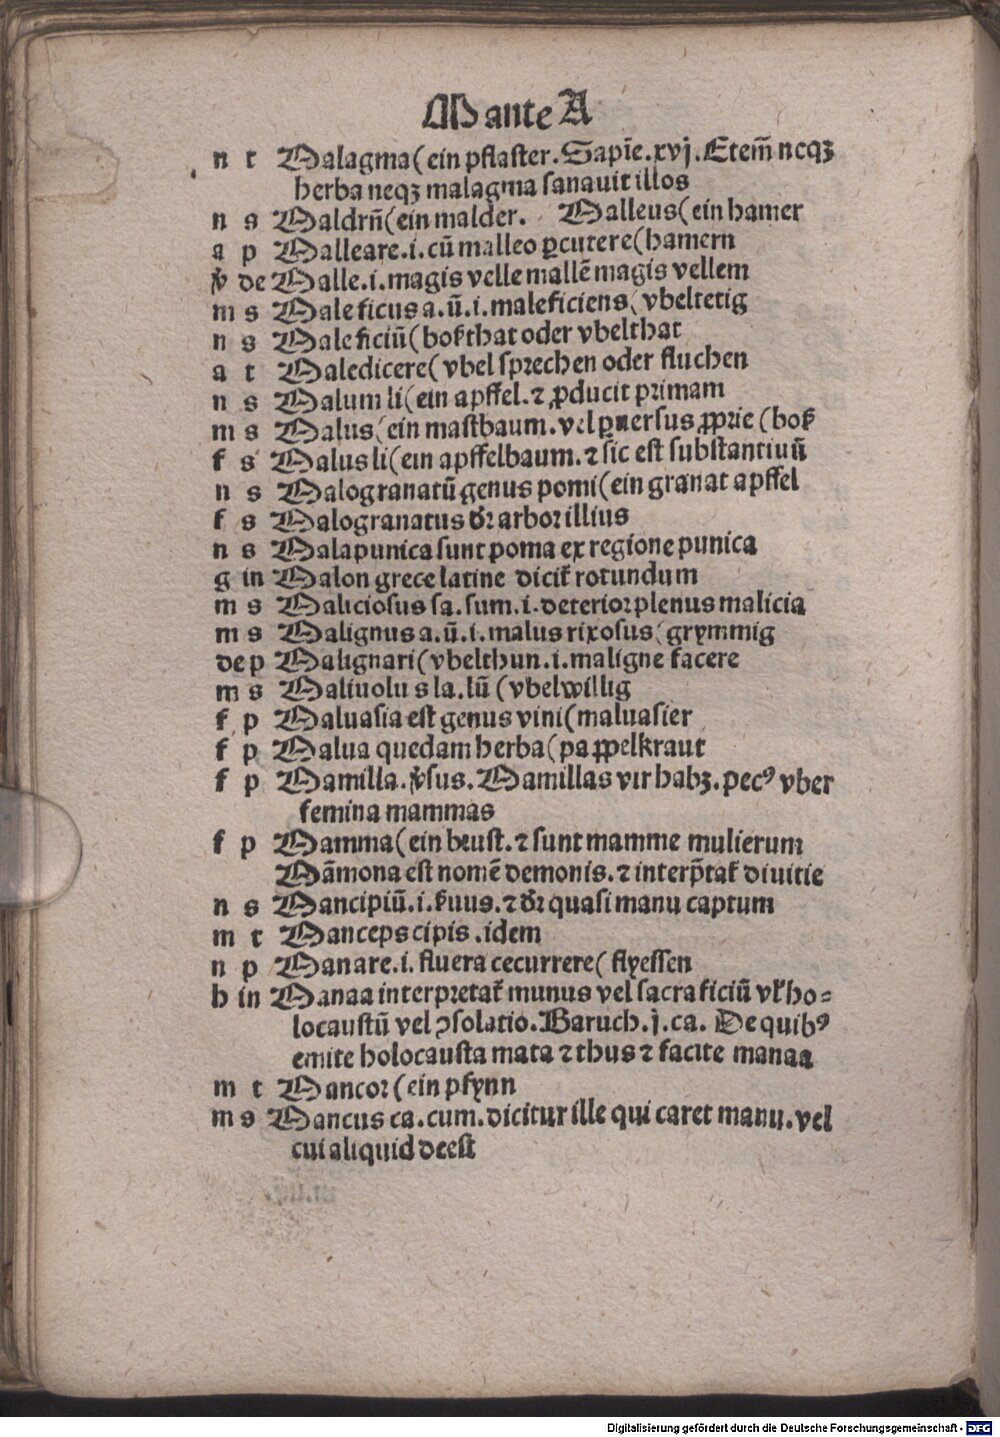 M ante A
n t Malagma (ein pflaster. Sapīe. xvj. Etem̄ neqꝫ
herba neqꝫ malagma sanauit illos
n s Maldrn̄ (ein malder. Malleus (ein hamer
a p Malleare .i. cū malleo ꝑcutere (hamern
v̄ de Malle .i. magis velle mallē magis vellem
m s Maleficus a. ū. i. maleficiens (vbeltetig
n s Maleficiū (boßthat oder vbelthat
a t Maledicere (vbel sprechen oder fluchen
n s Malum li (ein apffel. ⁊ ꝓducit primam
m s Malus (ein mastbaum. vel ꝑuersus ꝓprie (boß
f s Malus li (ein apffelbaum. ⁊ sic est substantiuū
n s Malogranatū genus pomi (ein granat apffel
f s Malogranatus dr̄ arbor illius
n s Malapunica sunt poma ex regione punica
g in Malon grece latine dicit̄ rotundum
m s Maliciosus sa. sum. i. deterior plenus malicia
m s Malignus a. ū. i. malus rixosus (grymmig
de p Malignari (vbelthun .i. maligne facere
m s Maliuolus la. lū (vbelwillig
f p Maluasia est genus vini (maluasier
f p Malua quedam herba (pappelkraut
f p Mamilla. v̄sus. Mamillas vir habꝫ. pecꝰ vber
femina mammas
f p Mamma (ein brust. ⁊ sunt mamme mulierum
Māmona est nomē demonis. ⁊ interp̄tat̄ diuitie
n s Mancipiū .i. ẜuus. ⁊ dr̄ quasi manu captum
m t Manceps cipis. idem
n p Manare .i. fluera cecurrere (flyessen
h in Manaa interpretat̄ munus vel sacraficiū vl̄ ho⸗
locaustū vel ꝯsolatio. Baruch. j. ca. De quibꝰ
emite holocausta mata ⁊ thus ⁊ facite manaa
m t Mancor (ein pfynn
m s Mancus ca. cum. dicitur ille qui caret manu. vel
cui aliquid deest
Digitalisierung gefördert durch die Deutsche Forschungsgemeinschaft - DFG